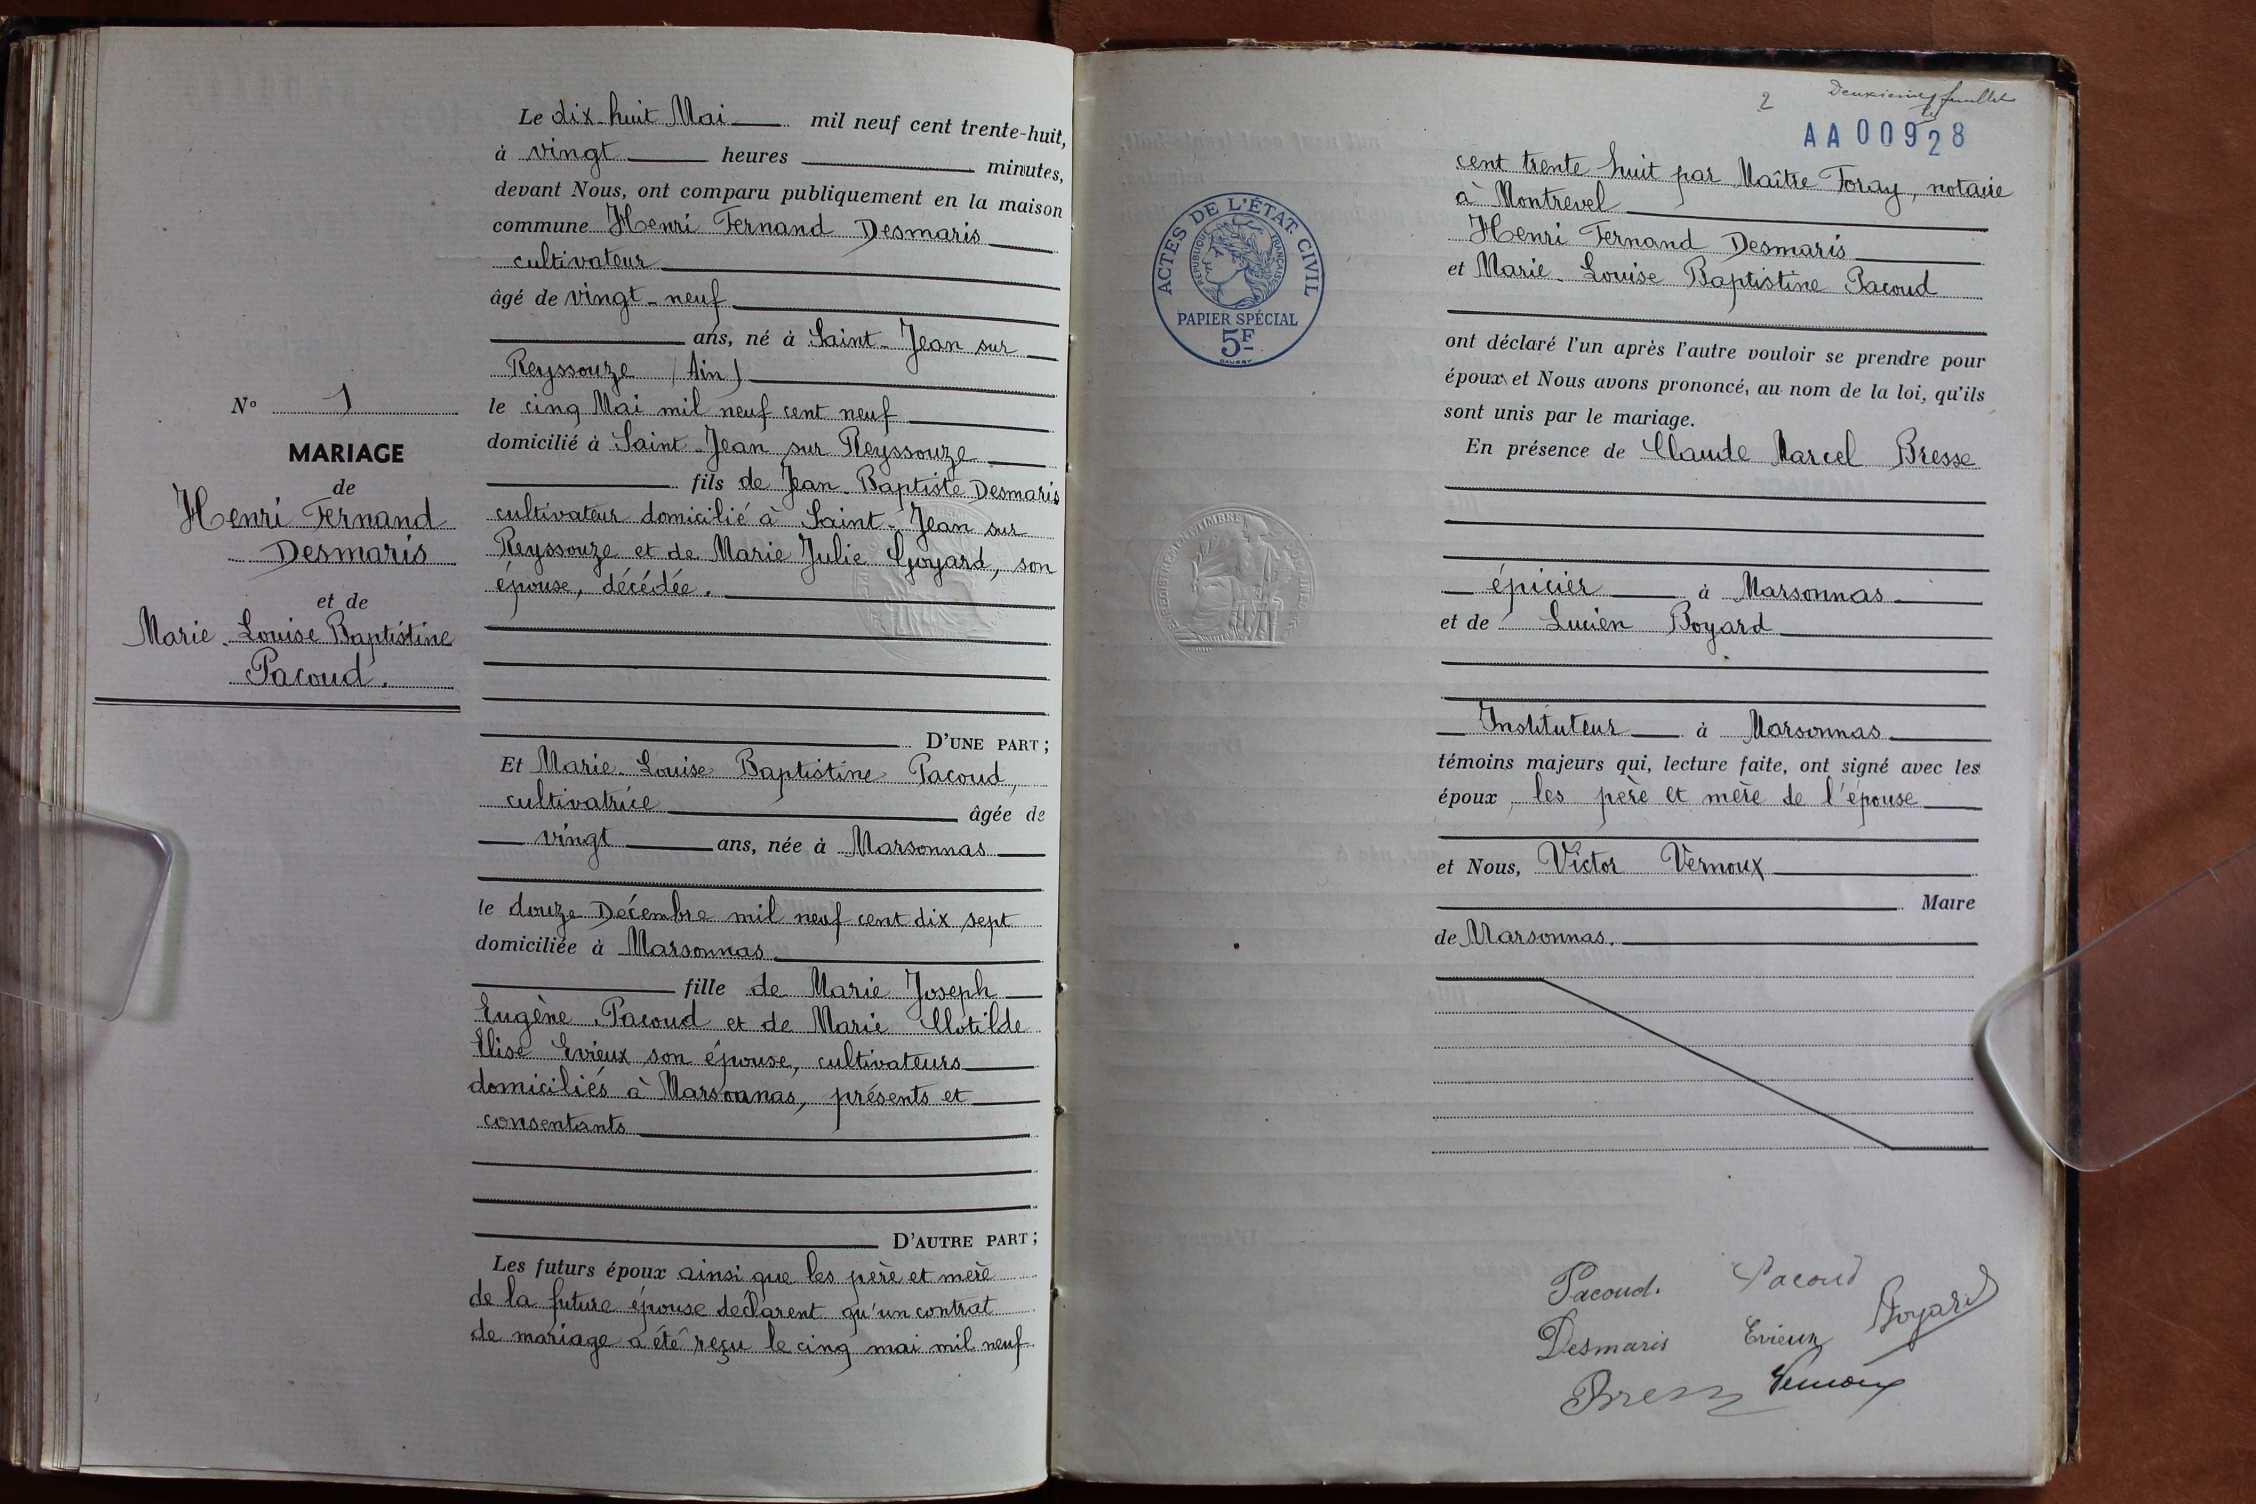 N° 1
MARIAGE
de
Henri Fernand
Desmaris
et de
Marie-Louise Baptistine
Pacoud.
Le dix-huit Mai mil neuf cent trente-huit,
à vingt heures minutes,
devant Nous, ont comparu publiquement en la maison
commune Henri Fernand Desmaris
cultivateur
âgé de vingt-neuf
ans, né à Saint-Jean sur
Reyssouze (Ain)
le cinq Mai mil neuf cent neuf
domicilié à Saint-Jean sur Reyssouze
fils de Jean-Baptiste Desmaris
cultivateur domicilié à Saint-Jean sur
Reyssouze et de Marie Julie Goyard, son
épouse, décédée.
D'UNE PART;
Et Marie-Louise Baptistine Pacoud,
cultivatrice âgée de
vingt ans, née à Marsonnas
le douze Décembre mil neuf cent dix sept
domiciliée à Marsonnas
fille de Marie Joseph
Eugène Pacoud et de Marie Clotilde
Elise Evieux son épouse, cultivateurs
domiciliés à Marsonnas, présents et
consentants
D'AUTRE PART;
Les futurs époux ainsi que les père et mère
de la future épouse déclarent qu'un contrat
de mariage a été reçu le cinq mai mil neuf
2 Deuxième feuillet
AA00928
ACTES DE L'ÉTAT CIVIL
RÉPUBLIQUE FRANÇAISE
PAPIER SPÉCIAL
5F
cent trente huit par Maître Foray, notaire
à Montrevel
Henri Fernand Desmaris
et Marie-Louise Baptistine Pacoud
ont déclaré l'un après l'autre vouloir se prendre pour
époux et Nous avons prononcé, au nom de la loi, qu'ils
sont unis par le mariage.
En présence de Claude Marcel Bresse
épicier à Marsonnas
et de Lucien Boyard
Instituteur à Marsonnas
témoins majeurs qui, lecture faite, ont signé avec les
époux, les père et mère de l'épouse
et Nous, Victor Vernoux
Maire
de Marsonnas.
Pacoud. Pacoud
Desmaris Evieux Boyard
Bresse Vernoux